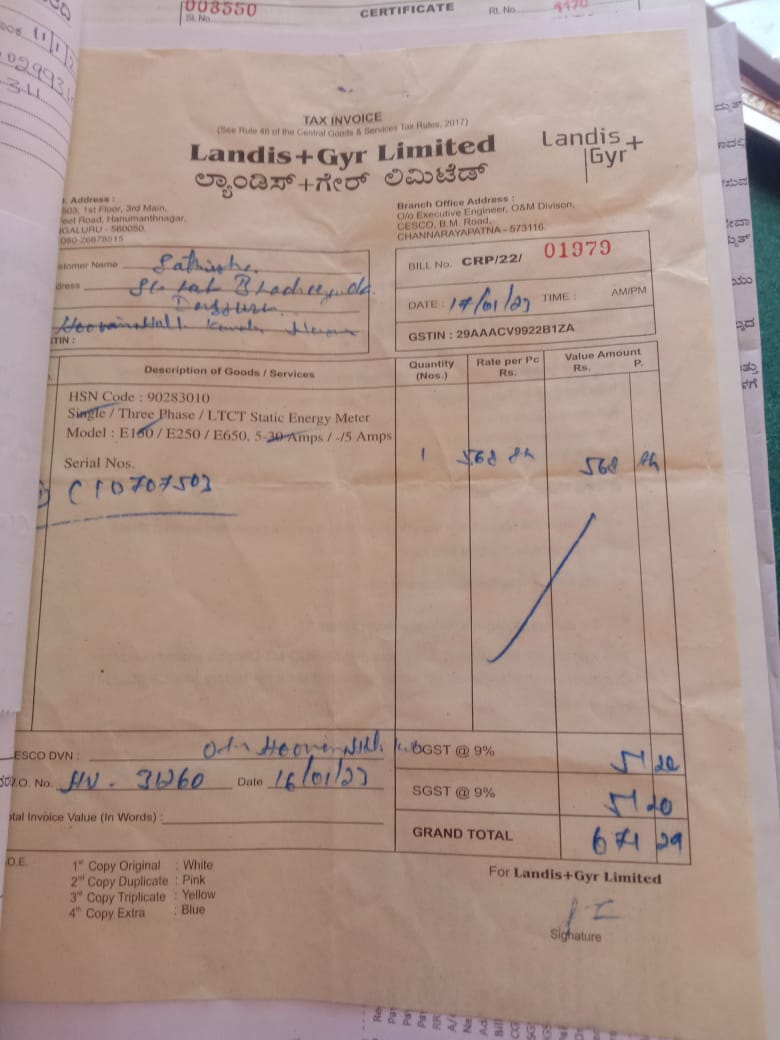 003550
Sl. No.
CERTIFICATE
Rt. No.
TAX INVOICE
(See Rule 46 of the Central Goods & Services Tax Rules, 2017)
Landis+Gyr Limited
ಲ್ಯಾಂಡಿಸ್+ಗೇರ್ ಲಿಮಿಟೆಡ್
Landis+
Gyr
Address :
503, 1st Floor, 3rd Main,
eet Road, Hanumanthnagar,
GALURU - 560050.
080-26678515
Branch Office Address :
O/o Executive Engineer, O&M Divison,
CESCO, B.M. Road,
CHANNARAYAPATNA - 573116.
stomer Name
dress
TIN :
BILL No. CRP/22/ 01979
DATE : 17/01/23 TIME : AM/PM
GSTIN : 29AAACV9922B1ZA
Description of Goods / Services
Quantity (Nos.)
Rate per Pc Rs.
Value Amount Rs. P.
HSN Code : 90283010
Single / Three Phase / LTCT Static Energy Meter
Model : E150 / E250 / E650, 5-30 Amps / -/5 Amps
Serial Nos.
1 568 84 568 84
C10707503
ESCO DVN :
CGST @ 9% 51 20
.O. No. HN - 31260 Date 16/01/23
SGST @ 9% 51 20
tal Invoice Value (In Words) :
GRAND TOTAL 671 29
O.E.
1st Copy Original : White
2nd Copy Duplicate : Pink
3rd Copy Triplicate : Yellow
4th Copy Extra : Blue
For Landis+Gyr Limited
Signature